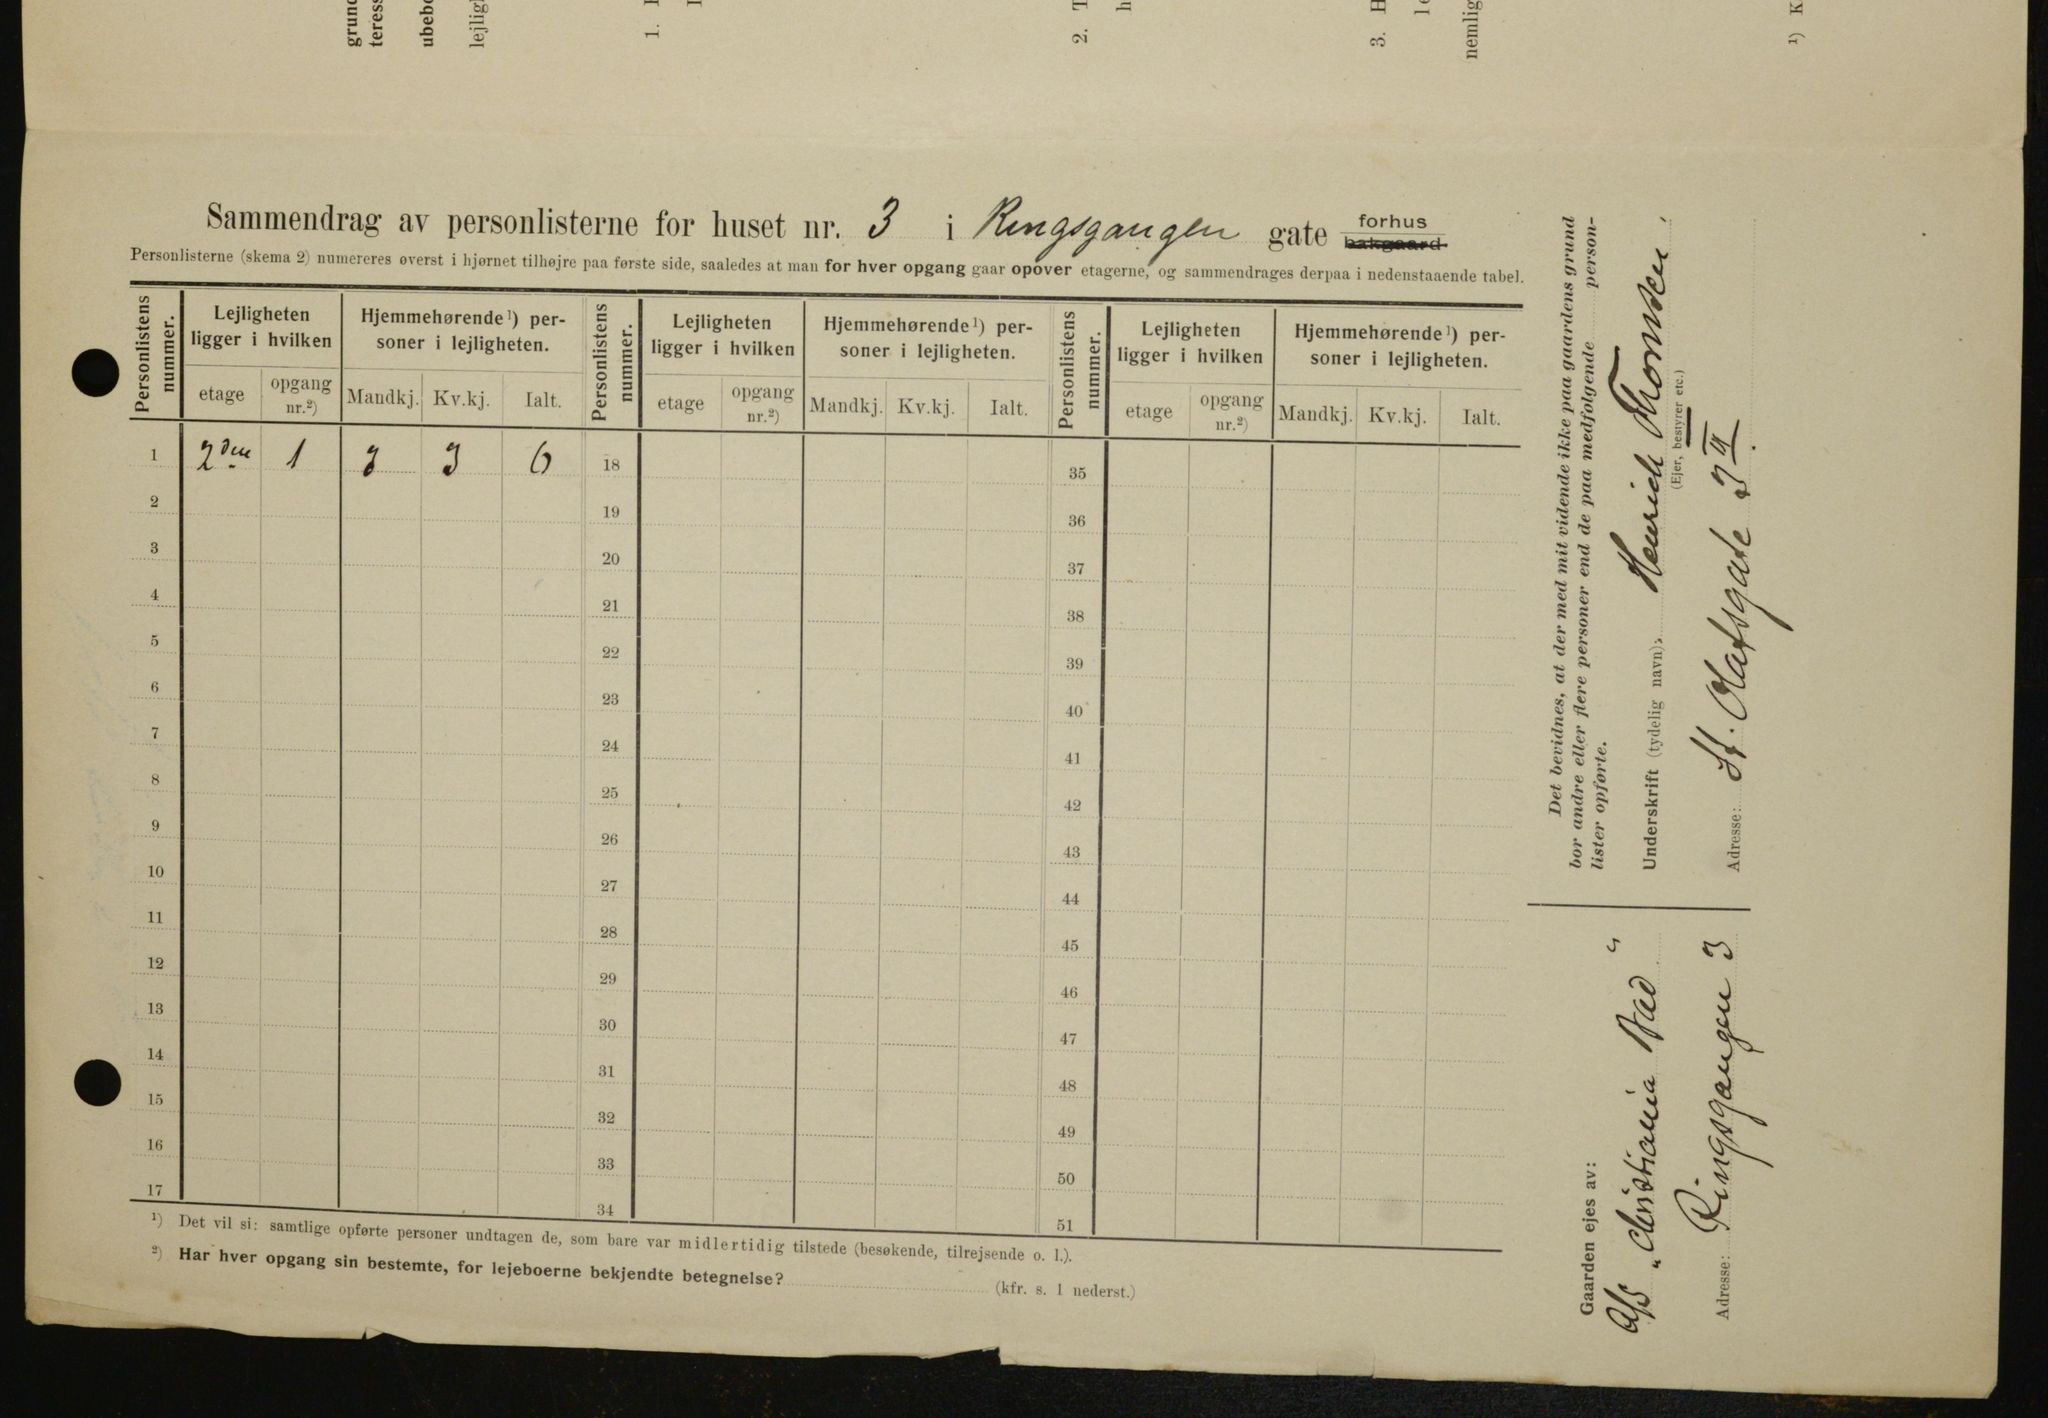 grund
teress
ubebo
lejligh
1. I
2. T
h
3. H
le
nemlig
¹) K
Sammendrag av personlisterne for huset nr. 3 i Ringsgangen gate forhus bakgaard.
Personlisterne (skema 2) numereres øverst i hjørnet tilhøjre paa første side, saaledes at man for hver opgang gaar opover etagerne, og sammendrages derpaa i nedenstaaende tabel.
Personlistens nummer. Lejligheten ligger i hvilken Hjemmehørende¹) personer i lejligheten. Personlistens nummer. Lejligheten ligger i hvilken Hjemmehørende¹) personer i lejligheten. Personlistens nummer. Lejligheten ligger i hvilken Hjemmehørende¹) personer i lejligheten.
etage opgang nr.²) Mandkj. Kv.kj. Ialt. etage opgang nr.²) Mandkj. Kv.kj. Ialt. etage opgang nr.²) Mandkj. Kv.kj. Ialt.
1 2den 1 3 3 6 18 35
2 19 36
3 20 37
4 21 38
5 22 39
6 23 40
7 24 41
8 25 42
9 26 43
10 27 44
11 28 45
12 29 46
13 30 47
14 31 48
15 32 49
16 33 50
17 34 51
¹) Det vil si: samtlige opførte personer undtagen de, som bare var midlertidig tilstede (besøkende, tilrejsende o. l.).
²) Har hver opgang sin bestemte, for lejeboerne bekjendte betegnelse? (kfr. s. 1 nederst.)
Det bevidnes, at der med mit vidende ikke paa gaardens grund
bor andre eller flere personer end de paa medfølgende person-
lister opførte.
Underskrift (tydelig navn): Henrich Thomsen,
(Ejer, bestyrer etc.)
Adresse: St. Olafsgate 3 III.
Gaarden ejes av:
A/S "Christiania Bad"
Adresse: Ringsgangen 3